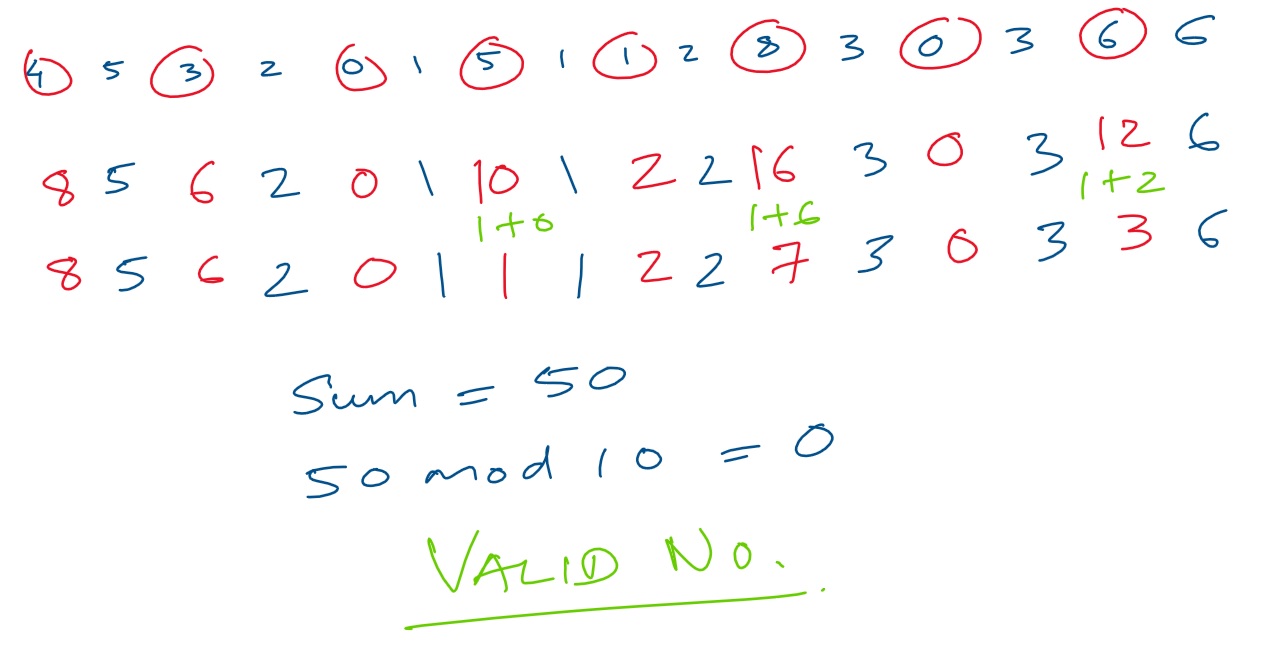 4 5 3 2 0 1 5 1 1 2 8 3 0 3 6 6
8 5 6 2 0 1 10 1 2 2 16 3 0 3 12 6
1+0 1+6 1+2
8 5 6 2 0 1 1 1 2 2 7 3 0 3 3 6
Sum = 50
50 mod 10 = 0
VALID NO.